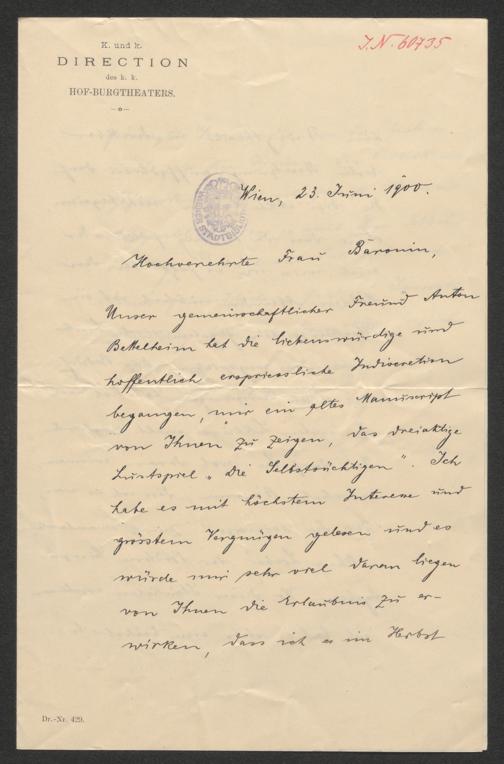 J.N. 60735
K. und k.
DIRECTION
des k. k.
HOF-BURGTHEATERS.
Wien, 23. Juni 1900.
Hochverehrte Frau Baronin,
Unser gemeinschaftlicher Freund Anton
Bettelheim hat die liebenswürdige und
hoffentlich erspriessliche Indiscretion
begangen, mir ein altes Manuscript
von Ihnen zu zeigen, das dreiaktige
Lustspiel „Die Selbstsüchtigen“. Ich
habe es mit höchstem Interesse und
grösstem Vergnügen gelesen und es
würde mir sehr viel daran liegen
von Ihnen die Erlaubnis zu er-
wirken, dass ich es im Herbst
Dr.-Nr. 429.